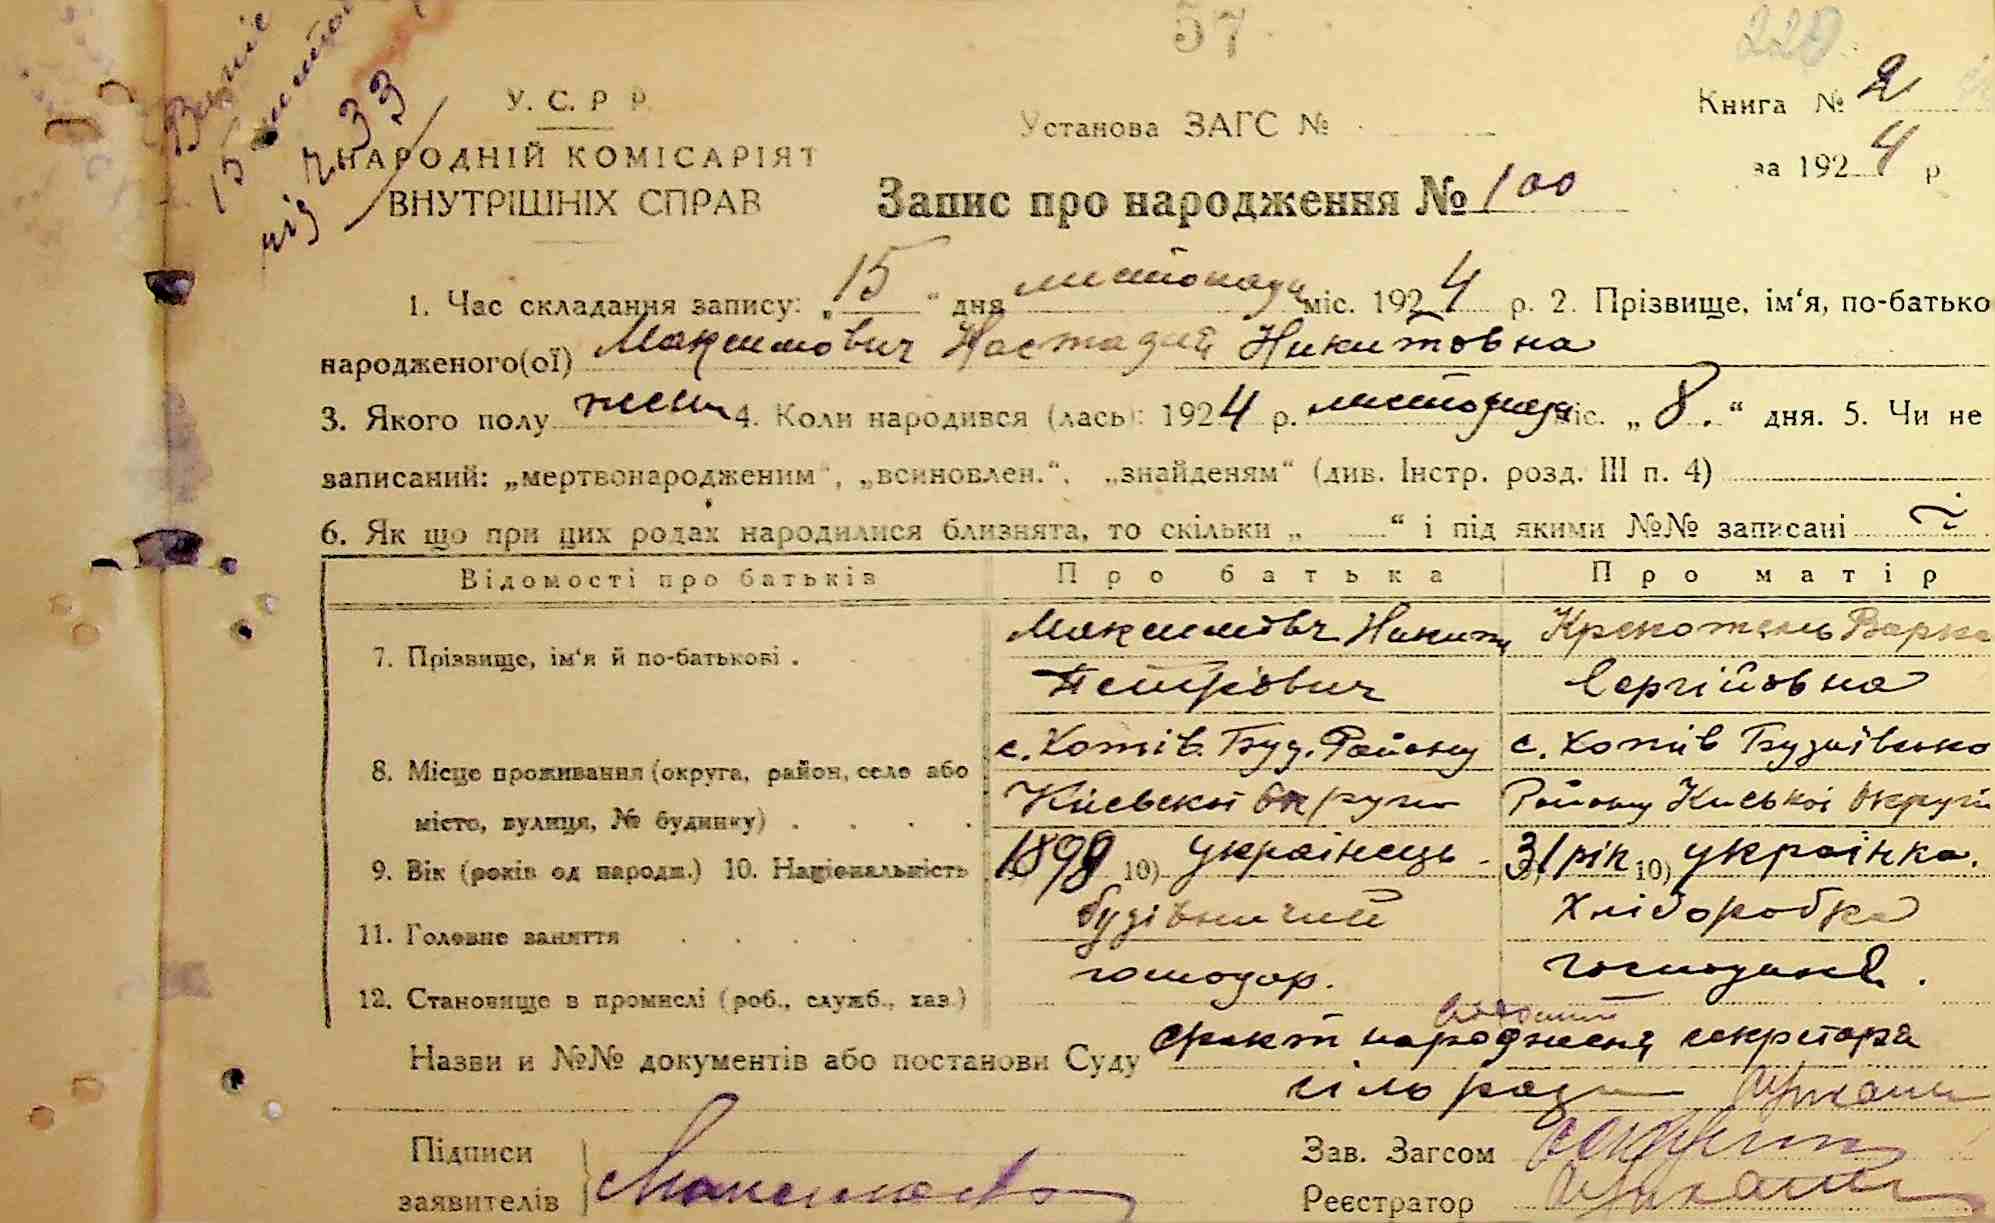 57
220
Випис
15 листоп
під ч 33
У. С. Р Р.
Установа ЗАГС №
Книга № 2
НАРОДНІЙ КОМІСАРІЯТ
за 1924 р
ВНУТРІШНІХ СПРАВ
Запис про народження № 100
1. Час складання запису: „15“ дня листопада міс. 1924 р. 2. Прізвище, ім‘я, по-батько
народженого(ої) Максимович Настазий Никитовна
3. Якого полу жен 4. Коли народився (лась): 1924 р. листопада міс. „8.“ дня. 5. Чи не
записаний: „мертвонародженим“, „всиновлен.“, „знайденям“ (див. Інстр. розд. III п. 4)
6. Як що при цих родах народилися близнята, то скільки „ “ і під якими №№ записані
Відомості про батьків Про батька Про матір
7. Прізвище, ім‘я й по-батькові . Максимовч Никита Крекотень Варка
Петрович Сергійовна
8. Місце проживання (округа, район, село або с. Хотів Буд. Району с. Хотів Будаївсько
місто, вулиця, № будинку) . . . . Київскої округи Району Киської округи
9. Вік (років од народж.) 10. Національність 1898 10) українець - 31 рік 10) українка.
11. Головне заняття . . . . . будівничий Хліборобка
12. Становище в промислі (роб., служб., хаз.) господар. господиня.
Назви и №№ документів або постанови Суду факт народженя секретара
сільради
Підписи
Зав. Загсом
заявителів
Реєстратор